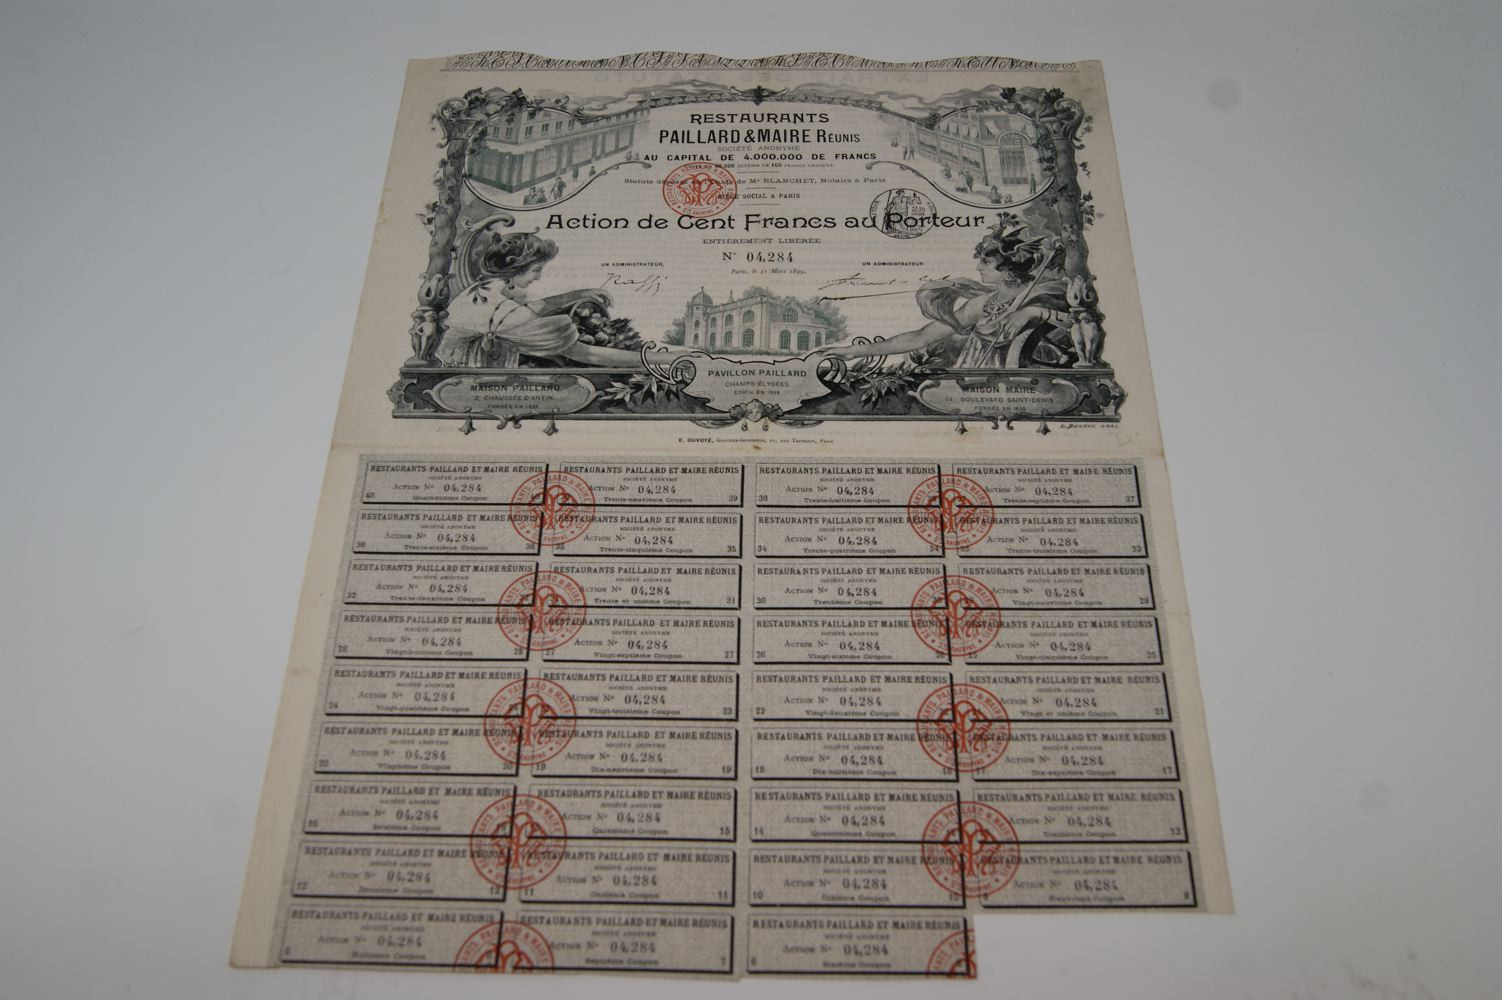 RESTAURANTS
PAILLARD & MAIRE RÉUNIS
SOCIÉTÉ ANONYME
AU CAPITAL DE 4.000.000 DE FRANCS
ACTIONS DE 100 FRANCS CHACUNE
Statuts de Me BLANCHET, Notaire à Paris
SIÈGE SOCIAL A PARIS
Action de Cent Francs au Porteur
ENTIÈREMENT LIBÉRÉE
N° 04,284
UN ADMINISTRATEUR, UN ADMINISTRATEUR
Paris, le 21 Mars 1899.
MAISON PAILLARD
2, CHAUSSÉE D'ANTIN
FONDÉE EN
PAVILLON PAILLARD
CHAMPS-ÉLYSÉES
ÉDIFIÉ EN 1898
MAISON MAIRE
14, BOULEVARD SAINT-DENIS
FONDÉE EN
E. DUYOTÉ, GRAV.
E. DUYOTÉ, Graveur-Imprimeur, Rue Taitbout, Paris
RESTAURANTS PAILLARD ET MAIRE RÉUNIS
SOCIÉTÉ ANONYME
Action N° 04,284
40 Quarantième Coupon 40
RESTAURANTS PAILLARD ET MAIRE RÉUNIS
SOCIÉTÉ ANONYME
Action N° 04,284
Trente-neuvième Coupon 39
RESTAURANTS PAILLARD ET MAIRE RÉUNIS
SOCIÉTÉ ANONYME
Action N° 04,284
38 Trente-huitième Coupon 38
RESTAURANTS PAILLARD ET MAIRE RÉUNIS
SOCIÉTÉ ANONYME
Action N° 04,284
Trente-septième Coupon 37
RESTAURANTS PAILLARD ET MAIRE RÉUNIS
SOCIÉTÉ ANONYME
Action N° 04,284
36 Trente-sixième Coupon 36
RESTAURANTS PAILLARD ET MAIRE RÉUNIS
SOCIÉTÉ ANONYME
Action N° 04,284
35 Trente-cinquième Coupon 35
RESTAURANTS PAILLARD ET MAIRE RÉUNIS
SOCIÉTÉ ANONYME
Action N° 04,284
34 Trente-quatrième Coupon 34
RESTAURANTS PAILLARD ET MAIRE RÉUNIS
SOCIÉTÉ ANONYME
Action N° 04,284
33 Trente-troisième Coupon 33
RESTAURANTS PAILLARD ET MAIRE RÉUNIS
SOCIÉTÉ ANONYME
Action N° 04,284
32 Trente-deuxième Coupon
RESTAURANTS PAILLARD ET MAIRE RÉUNIS
SOCIÉTÉ ANONYME
Action N° 04,284
Trente et unième Coupon 31
RESTAURANTS PAILLARD ET MAIRE RÉUNIS
SOCIÉTÉ ANONYME
Action N° 04,284
30 Trentième Coupon
RESTAURANTS PAILLARD ET MAIRE RÉUNIS
SOCIÉTÉ ANONYME
Action N° 04,284
Vingt-neuvième Coupon 29
RESTAURANTS PAILLARD ET MAIRE RÉUNIS
SOCIÉTÉ ANONYME
Action N° 04,284
28 Vingt-huitième Coupon 28
RESTAURANTS PAILLARD ET MAIRE RÉUNIS
SOCIÉTÉ ANONYME
Action N° 04,284
27 Vingt-septième Coupon 27
RESTAURANTS PAILLARD ET MAIRE RÉUNIS
SOCIÉTÉ ANONYME
Action N° 04,284
26 Vingt-sixième Coupon 26
RESTAURANTS PAILLARD ET MAIRE RÉUNIS
SOCIÉTÉ ANONYME
Action N° 04,284
25 Vingt-cinquième Coupon 25
RESTAURANTS PAILLARD ET MAIRE RÉUNIS
SOCIÉTÉ ANONYME
Action N° 04,284
24 Vingt-quatrième Coupon
RESTAURANTS PAILLARD ET MAIRE RÉUNIS
SOCIÉTÉ ANONYME
Action N° 04,284
Vingt-troisième Coupon 23
RESTAURANTS PAILLARD ET MAIRE RÉUNIS
SOCIÉTÉ ANONYME
Action N° 04,284
22 Vingt-deuxième Coupon
RESTAURANTS PAILLARD ET MAIRE RÉUNIS
SOCIÉTÉ ANONYME
Action N° 04,284
Vingt et unième Coupon 21
RESTAURANTS PAILLARD ET MAIRE RÉUNIS
SOCIÉTÉ ANONYME
Action N° 04,284
20 Vingtième Coupon 20
RESTAURANTS PAILLARD ET MAIRE RÉUNIS
SOCIÉTÉ ANONYME
Action N° 04,284
19 Dix-neuvième Coupon 19
RESTAURANTS PAILLARD ET MAIRE RÉUNIS
SOCIÉTÉ ANONYME
Action N° 04,284
18 Dix-huitième Coupon 18
RESTAURANTS PAILLARD ET MAIRE RÉUNIS
SOCIÉTÉ ANONYME
Action N° 04,284
17 Dix-septième Coupon 17
RESTAURANTS PAILLARD ET MAIRE RÉUNIS
SOCIÉTÉ ANONYME
Action N° 04,284
16 Seizième Coupon
RESTAURANTS PAILLARD ET MAIRE RÉUNIS
SOCIÉTÉ ANONYME
Action N° 04,284
Quinzième Coupon 15
RESTAURANTS PAILLARD ET MAIRE RÉUNIS
SOCIÉTÉ ANONYME
Action N° 04,284
14 Quatorzième Coupon
RESTAURANTS PAILLARD ET MAIRE RÉUNIS
SOCIÉTÉ ANONYME
Action N° 04,284
Treizième Coupon 13
RESTAURANTS PAILLARD ET MAIRE RÉUNIS
SOCIÉTÉ ANONYME
Action N° 04,284
12 Douzième Coupon 12
RESTAURANTS PAILLARD ET MAIRE RÉUNIS
SOCIÉTÉ ANONYME
Action N° 04,284
11 Onzième Coupon 11
RESTAURANTS PAILLARD ET MAIRE RÉUNIS
SOCIÉTÉ ANONYME
Action N° 04,284
10 Dixième Coupon 10
RESTAURANTS PAILLARD ET MAIRE RÉUNIS
SOCIÉTÉ ANONYME
Action N° 04,284
9 Neuvième Coupon 9
RESTAURANTS PAILLARD ET MAIRE RÉUNIS
SOCIÉTÉ ANONYME
Action N° 04,284
8 Huitième Coupon
RESTAURANTS PAILLARD ET MAIRE RÉUNIS
SOCIÉTÉ ANONYME
Action N° 04,284
Septième Coupon 7
RESTAURANTS PAILLARD ET MAIRE RÉUNIS
SOCIÉTÉ ANONYME
Action N° 04,284
6 Sixième Coupon